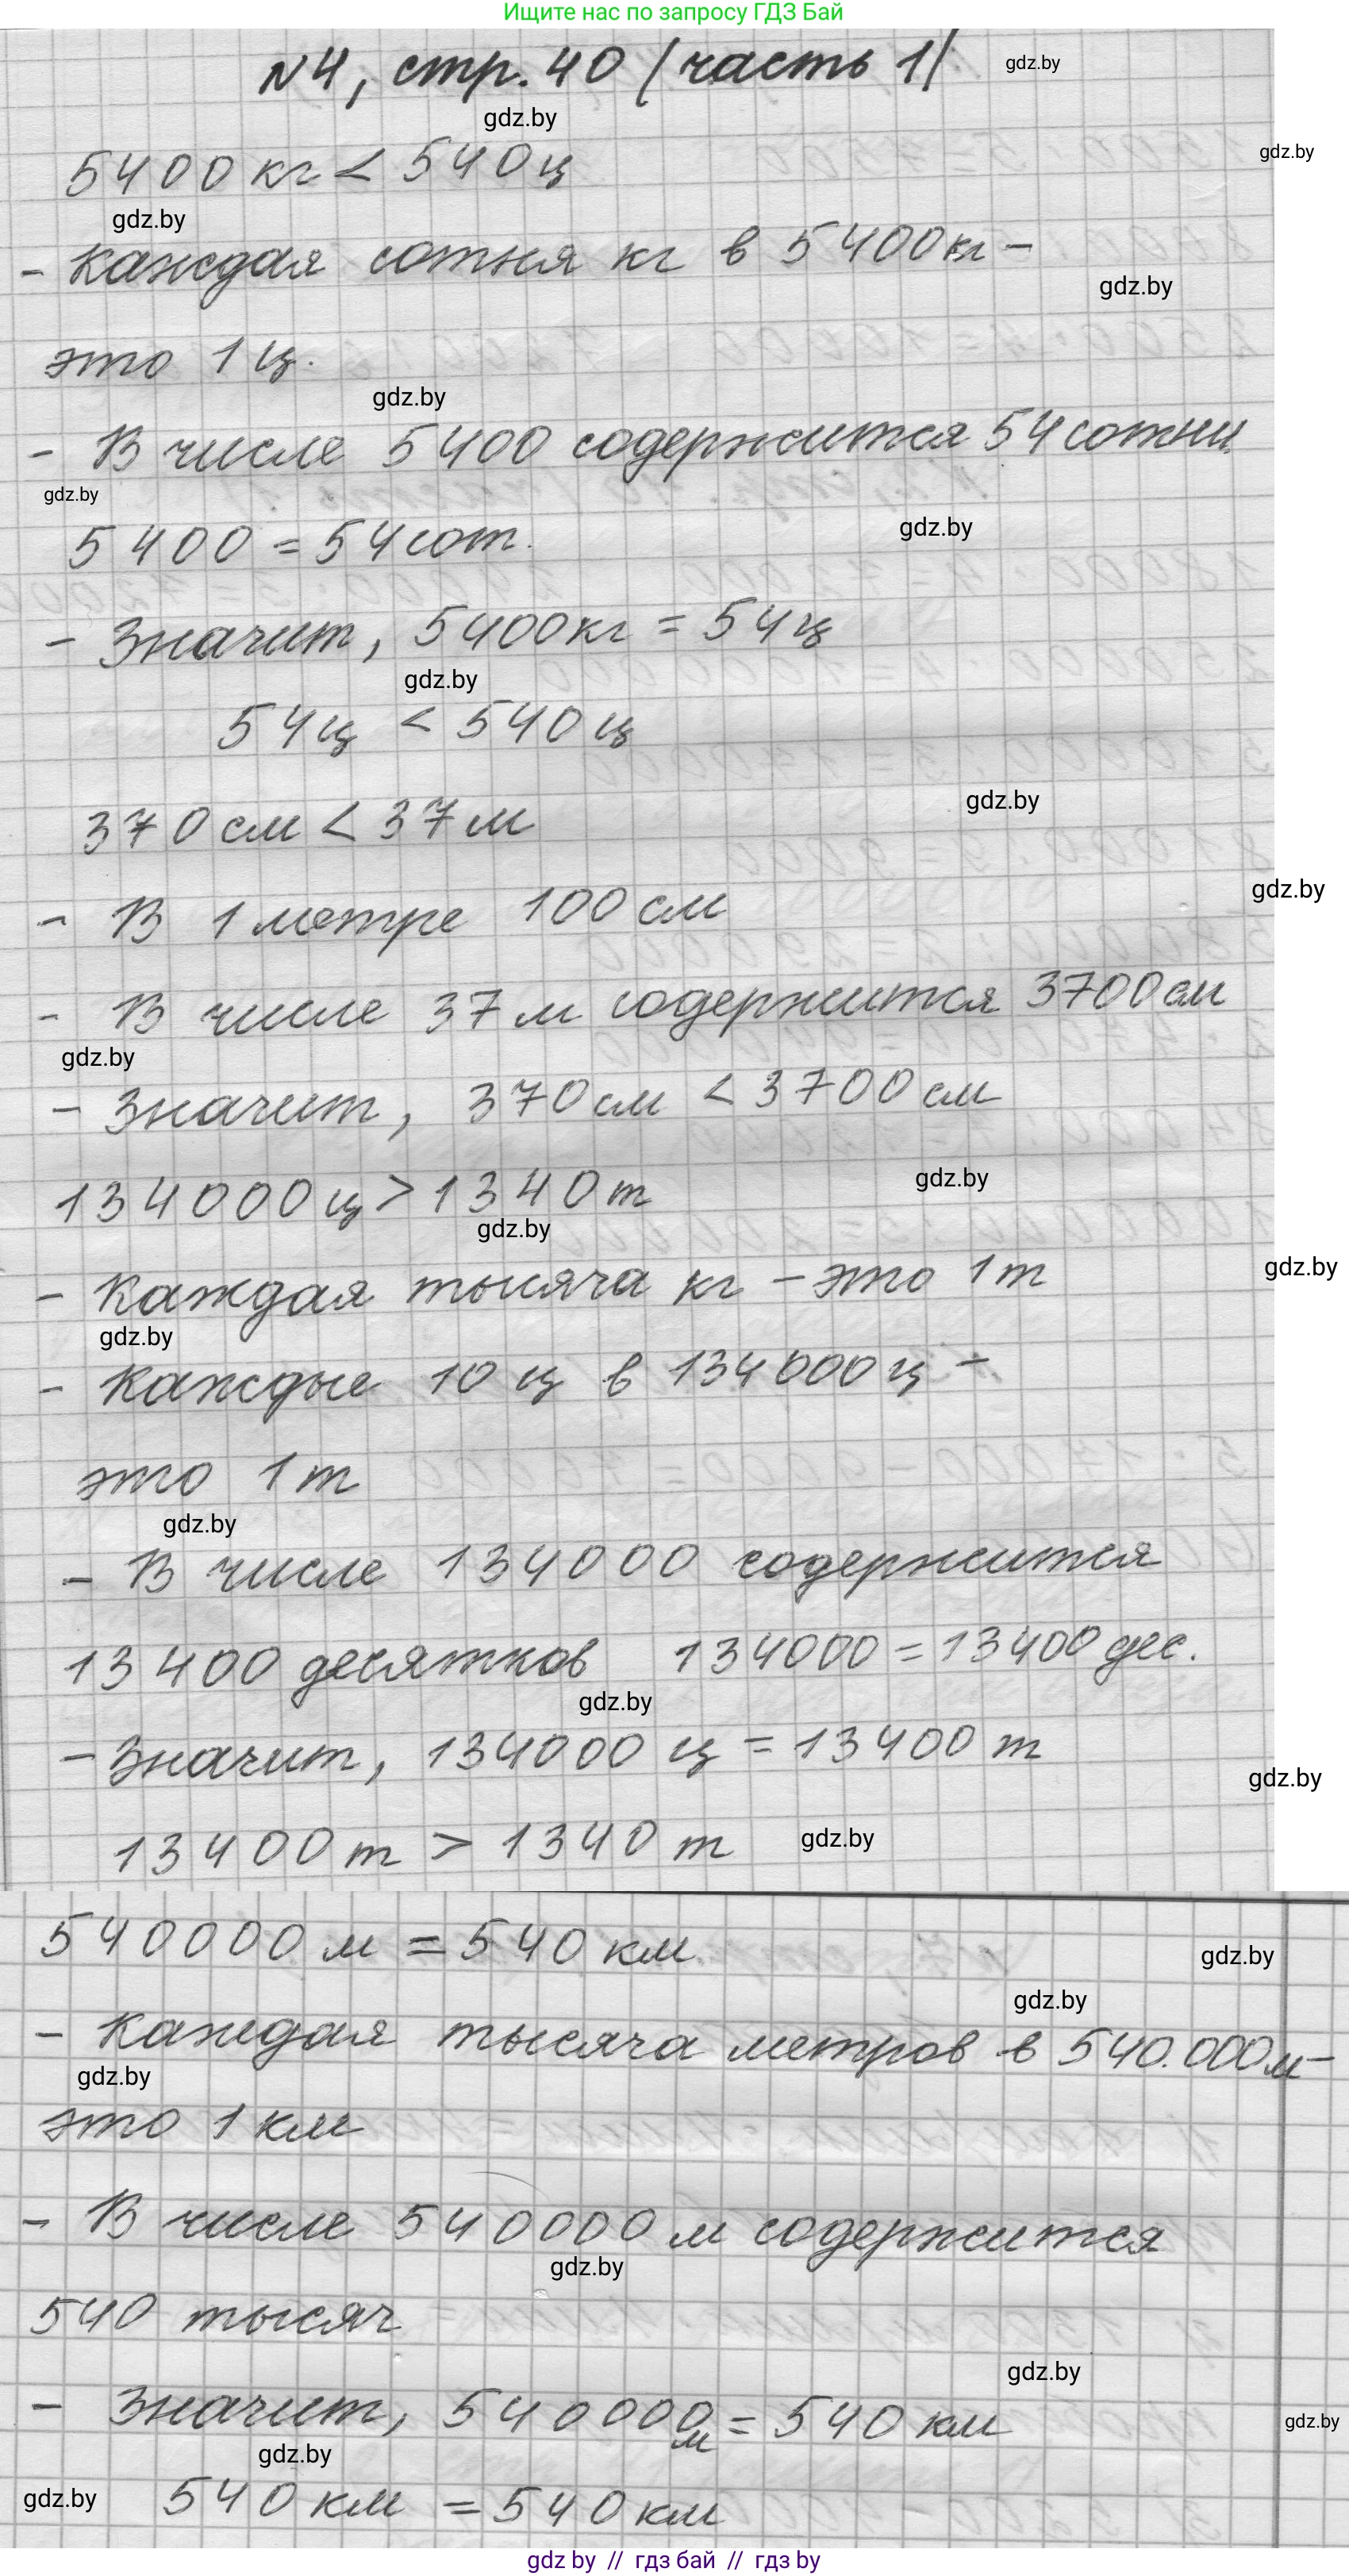 Ищите нас по запросу ГДЗ Бай
№4, стр. 40 (часть 1)
gdz.by
gdz.by
gdz.by
5400 кг < 540 ц
gdz.by
- Каждая сотня кг в 5400 кг -
gdz.by
это 1 ц.
gdz.by
- В числе 5400 содержится 54 сотни.
gdz.by
gdz.by
5400 = 54 сот.
- Значит, 5400 кг = 54 ц
gdz.by
54 ц < 540 ц
gdz.by
370 см < 37 м
gdz.by
- В 1 метре 100 см
- В числе 37 м содержится 3700 см
gdz.by
- Значит, 370 см < 3700 см
gdz.by
134000 ц > 1340 т
gdz.by
gdz.by
- Каждая тысяча кг - это 1 т
gdz.by
- Каждые 10 ц в 134000 ц -
это 1 т
gdz.by
- В числе 134000 содержится
13400 десятков 134000 = 13400 дес.
gdz.by
- Значит, 134000 ц = 13400 т
gdz.by
13400 т > 1340 т
gdz.by
540000 м = 540 км
gdz.by
gdz.by
- Каждая тысяча метров в 540.000 м -
gdz.by
это 1 км
- В числе 540000 м содержится
gdz.by
540 тысяч
gdz.by
- Значит, 540000 м = 540 км
gdz.by
gdz.by
gdz.by
540 км = 540 км
gdz by // гдз бай // гдз by